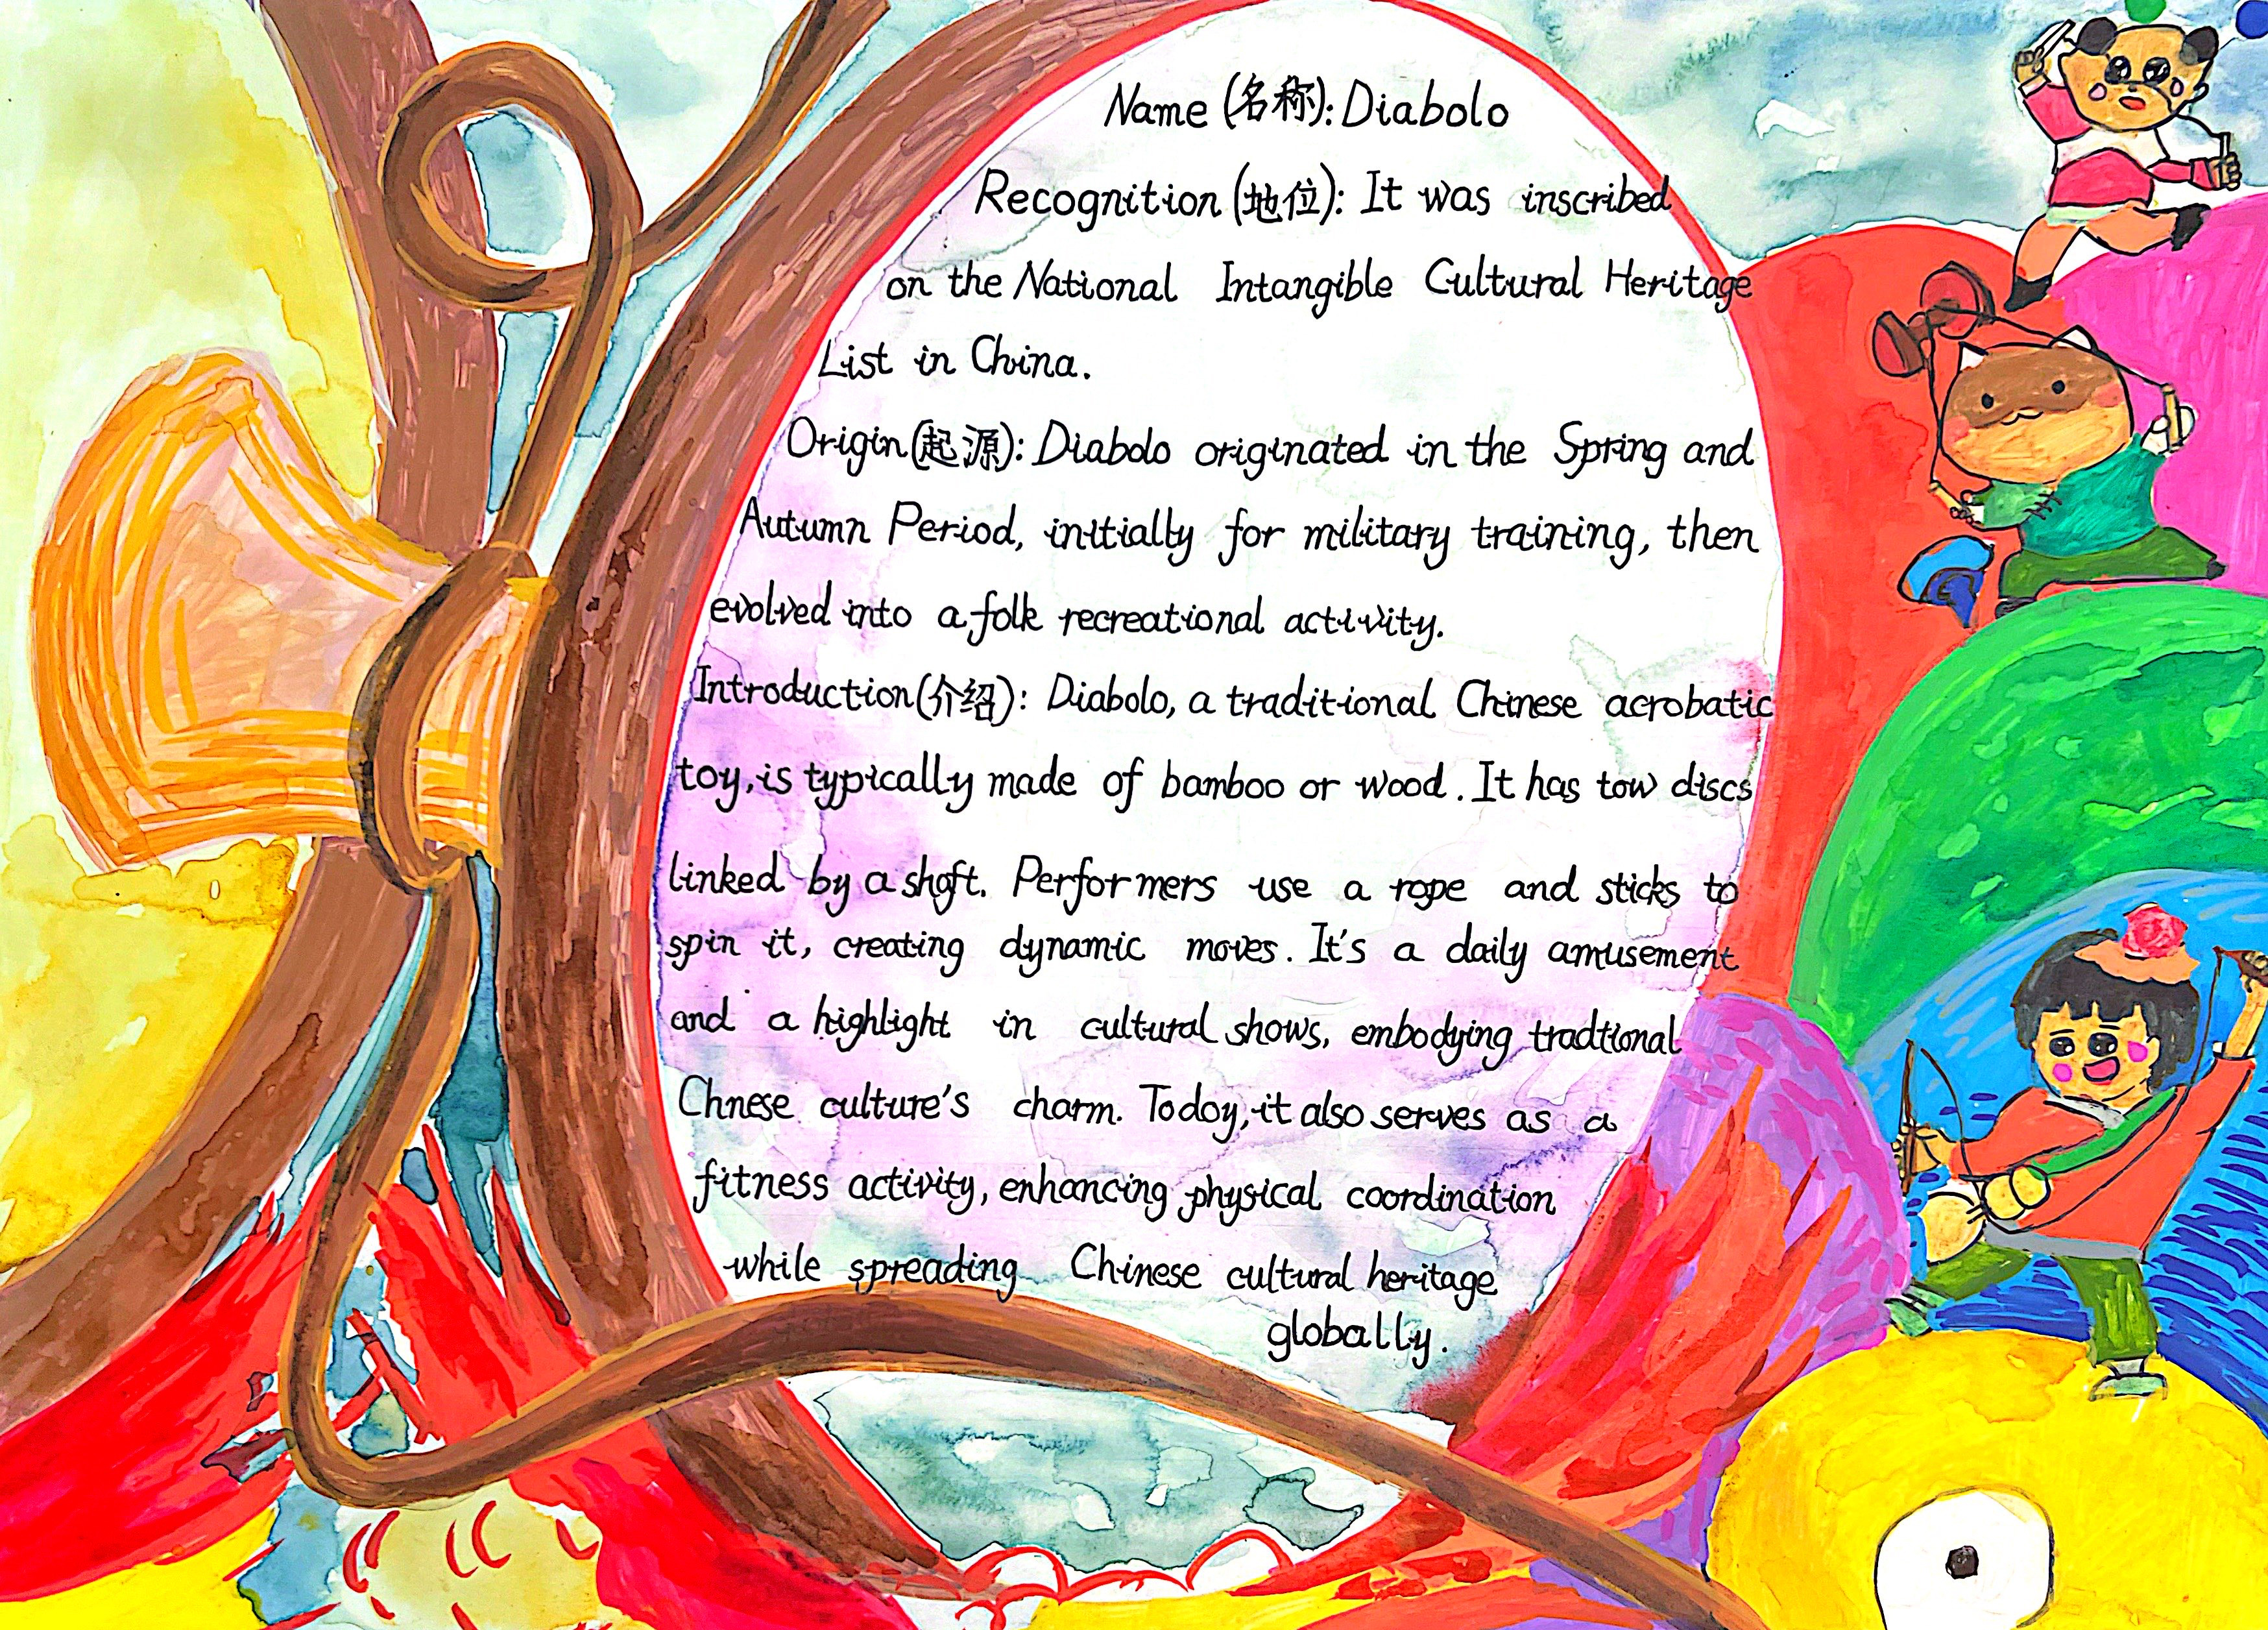 Name (名称): Diabolo
Recognition (地位): It was inscribed
on the National Intangible Cultural Heritage
List in China.
Origin (起源): Diabolo originated in the Spring and
Autumn Period, initially for military training, then
evolved into a folk recreational activity.
Introduction (介绍): Diabolo, a traditional Chinese acrobatic
toy, is typically made of bamboo or wood. It has tow discs
linked by a shaft. Performers use a rope and sticks to
spin it, creating dynamic moves. It's a daily amusement
and a highlight in cultural shows, embodying tradtional
Chnese culture's charm. Today, it also serves as a
fitness activity, enhancing physical coordination
while spreading Chinese cultural heritage
globally.